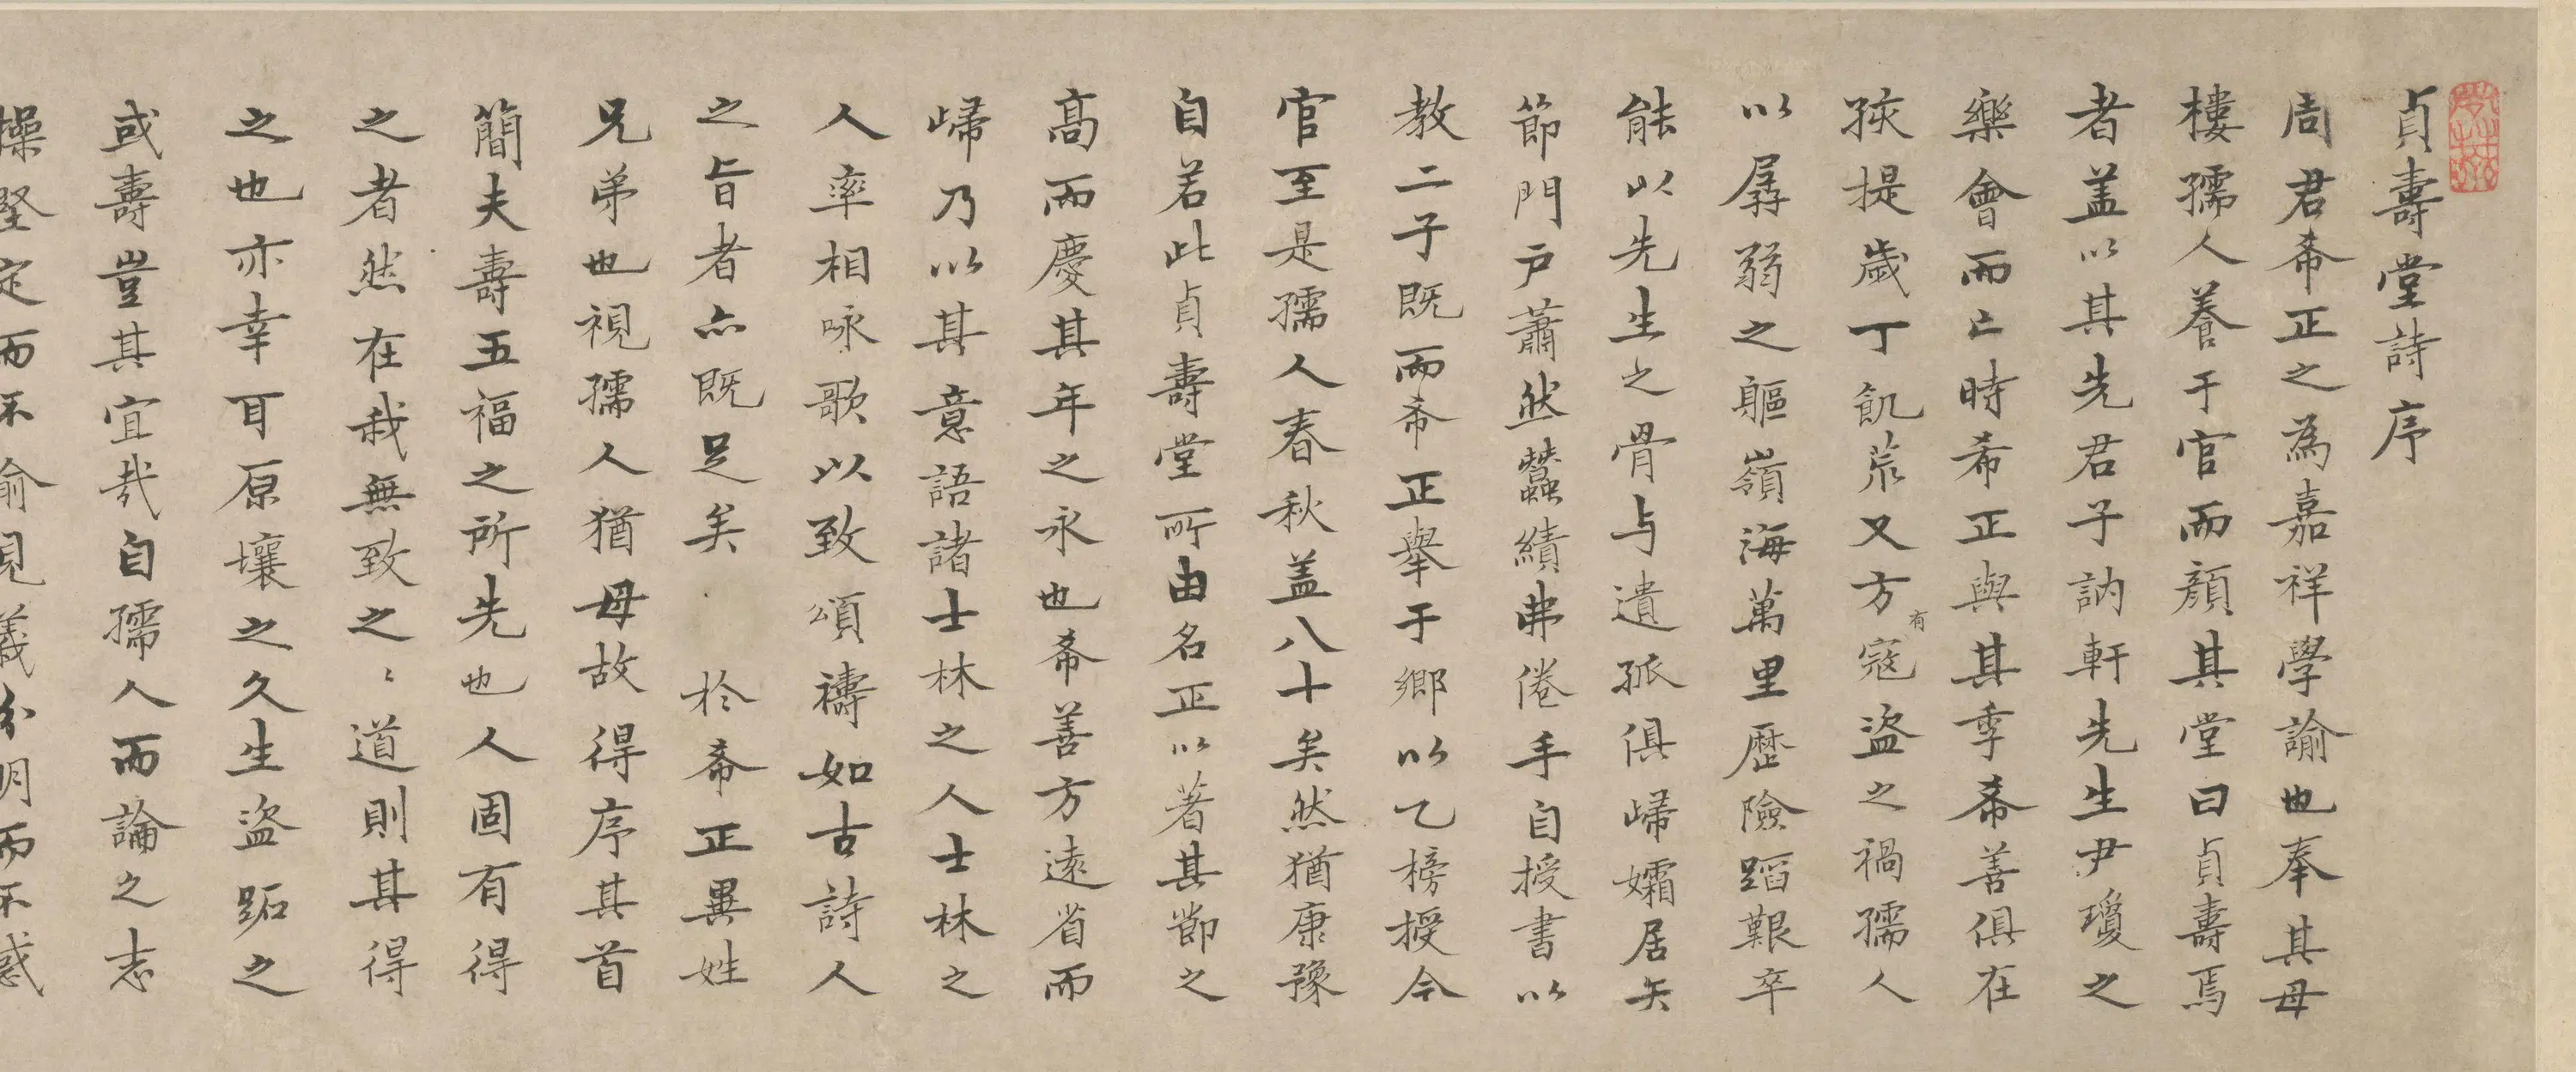 貞壽堂詩序
周君希正之為嘉祥學諭也奉其母
樓孺人養于官而顔其堂曰貞壽焉
者盖以其先君子訥軒先生尹瓊之
樂會而亡時希正與其季希善俱在
孩提歲丁飢荒又方有寇盜之禍孺人
以孱弱之軀嶺海萬里歷險蹈艱卒
能以先生之骨与遺孤俱歸孀居矢
節門戸蕭然蠶績弗倦手自授書以
教二子既而希正舉于鄉以乙榜授今
官至是孺人春秋盖八十矣然猶康豫
自若此貞壽堂所由名正以著其節之
高而慶其年之永也希善方遠省而
歸乃以其意語諸士林之人士林之
人率相咏歌以致頌禱如古詩人
之旨者亦既足矣 於希正異姓
兄弟也視孺人猶母故得序其首
簡夫壽五福之所先也人固有得
之者然在我無致之〻道則其得
之也亦幸耳原壤之久生盜跖之
或壽豈其宜哉自孺人而論之志
操堅定而不渝見義分明而不惑